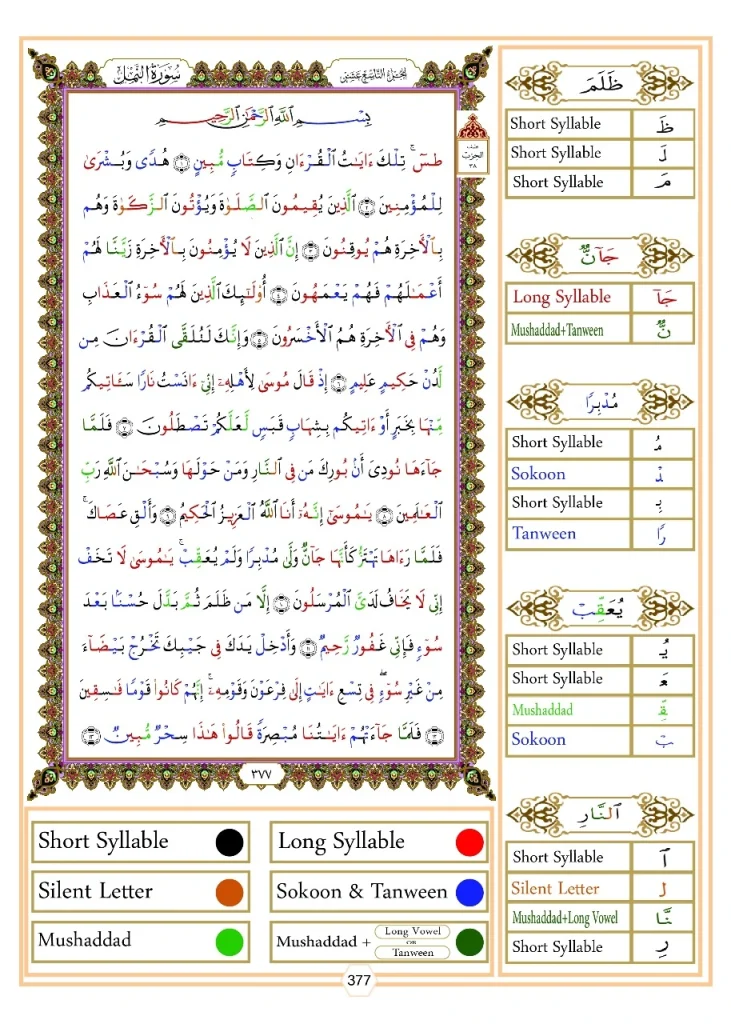 سُورَةُ النَّمْلِ
الجُزْءُ التَّاسِعُ عَشَرَ
بِسْمِ ٱللَّهِ ٱلرَّحْمَٰنِ ٱلرَّحِيمِ
نصف
الحزب
٣٨
طسٓۚ تِلْكَ ءَايَٰتُ ٱلْقُرْءَانِ وَكِتَابٍ مُّبِينٍ ١ هُدًى وَبُشْرَىٰ
لِلْمُؤْمِنِينَ ٢ ٱلَّذِينَ يُقِيمُونَ ٱلصَّلَوٰةَ وَيُؤْتُونَ ٱلزَّكَوٰةَ وَهُم
بِٱلْأَخِرَةِ هُمْ يُوقِنُونَ ٣ إِنَّ ٱلَّذِينَ لَا يُؤْمِنُونَ بِٱلْأَخِرَةِ زَيَّنَّا لَهُمْ
أَعْمَٰلَهُمْ فَهُمْ يَعْمَهُونَ ٤ أُو۟لَٰٓئِكَ ٱلَّذِينَ لَهُمْ سُوٓءُ ٱلْعَذَابِ
وَهُمْ فِى ٱلْأَخِرَةِ هُمُ ٱلْأَخْسَرُونَ ٥ وَإِنَّكَ لَتُلَقَّى ٱلْقُرْءَانَ مِن
لَّدُنْ حَكِيمٍ عَلِيمٍ ٦ إِذْ قَالَ مُوسَىٰ لِأَهْلِهِۦٓ إِنِّىٓ ءَانَسْتُ نَارًا سَـَٔاتِيكُم
مِّنْهَا بِخَبَرٍ أَوْ ءَاتِيكُم بِشِهَابٍ قَبَسٍ لَّعَلَّكُمْ تَصْطَلُونَ ٧ فَلَمَّا
جَآءَهَا نُودِىَ أَنۢ بُورِكَ مَن فِى ٱلنَّارِ وَمَنْ حَوْلَهَا وَسُبْحَٰنَ ٱللَّهِ رَبِّ
ٱلْعَٰلَمِينَ ٨ يَٰمُوسَىٰٓ إِنَّهُۥٓ أَنَا ٱللَّهُ ٱلْعَزِيزُ ٱلْحَكِيمُ ٩ وَأَلْقِ عَصَاكَۚ
فَلَمَّا رَءَاهَا تَهْتَزُّ كَأَنَّهَا جَآنٌّ وَلَّىٰ مُدْبِرًا وَلَمْ يُعَقِّبْۚ يَٰمُوسَىٰ لَا تَخَفْ
إِنِّى لَا يَخَافُ لَدَىَّ ٱلْمُرْسَلُونَ ١٠ إِلَّا مَن ظَلَمَ ثُمَّ بَدَّلَ حُسْنًۢا بَعْدَ
سُوٓءٍ فَإِنِّى غَفُورٌ رَّحِيمٌ ١١ وَأَدْخِلْ يَدَكَ فِى جَيْبِكَ تَخْرُجْ بَيْضَآءَ
مِنْ غَيْرِ سُوٓءٍۖ فِى تِسْعِ ءَايَٰتٍ إِلَىٰ فِرْعَوْنَ وَقَوْمِهِۦٓۚ إِنَّهُمْ كَانُوا۟ قَوْمًا فَٰسِقِينَ
١٢ فَلَمَّا جَآءَتْهُمْ ءَايَٰتُنَا مُبْصِرَةً قَالُوا۟ هَٰذَا سِحْرٌ مُّبِينٌ ١٣
٣٧٧
ظَلَمَ
Short Syllable ظَ
Short Syllable لَ
Short Syllable مَ
جَآنٌّ
Long Syllable جَآ
Mushaddad+Tanween نٌّ
مُدْبِرًا
Short Syllable مُ
Sokoon دْ
Short Syllable بِ
Tanween رًا
يُعَقِّبْ
Short Syllable يُ
Short Syllable عَ
Mushaddad قِّ
Sokoon بْ
ٱلنَّارِ
Short Syllable ٱ
Silent Letter ل
Mushaddad+Long Vowel نَّا
Short Syllable رِ
Short Syllable
Long Syllable
Silent Letter
Sokoon & Tanween
Mushaddad
Mushaddad + Long Vowel OR Tanween
377